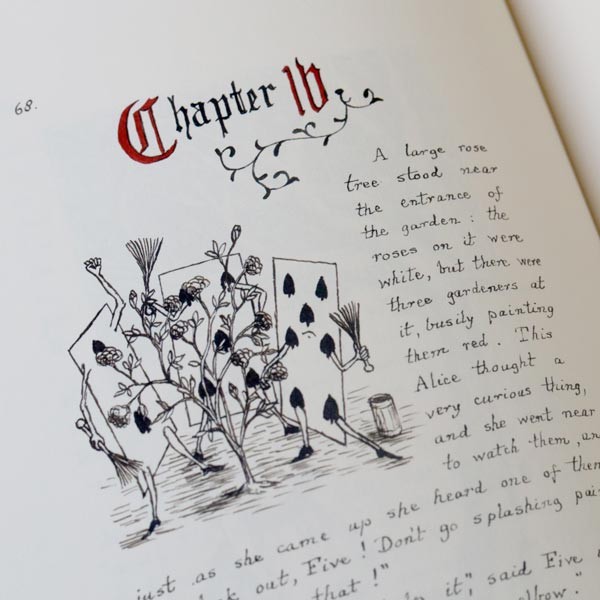 68.
Chapter IV
A large rose
tree stood near
the entrance of
the garden : the
roses on it were
white, but there were
three gardeners at
it, busily painting
them red. This
Alice thought a
very curious thing,
and she went near
to watch them, an
just as she came up she heard one of them
out, Five! Don't go splashing pai
that!"
it", said Five